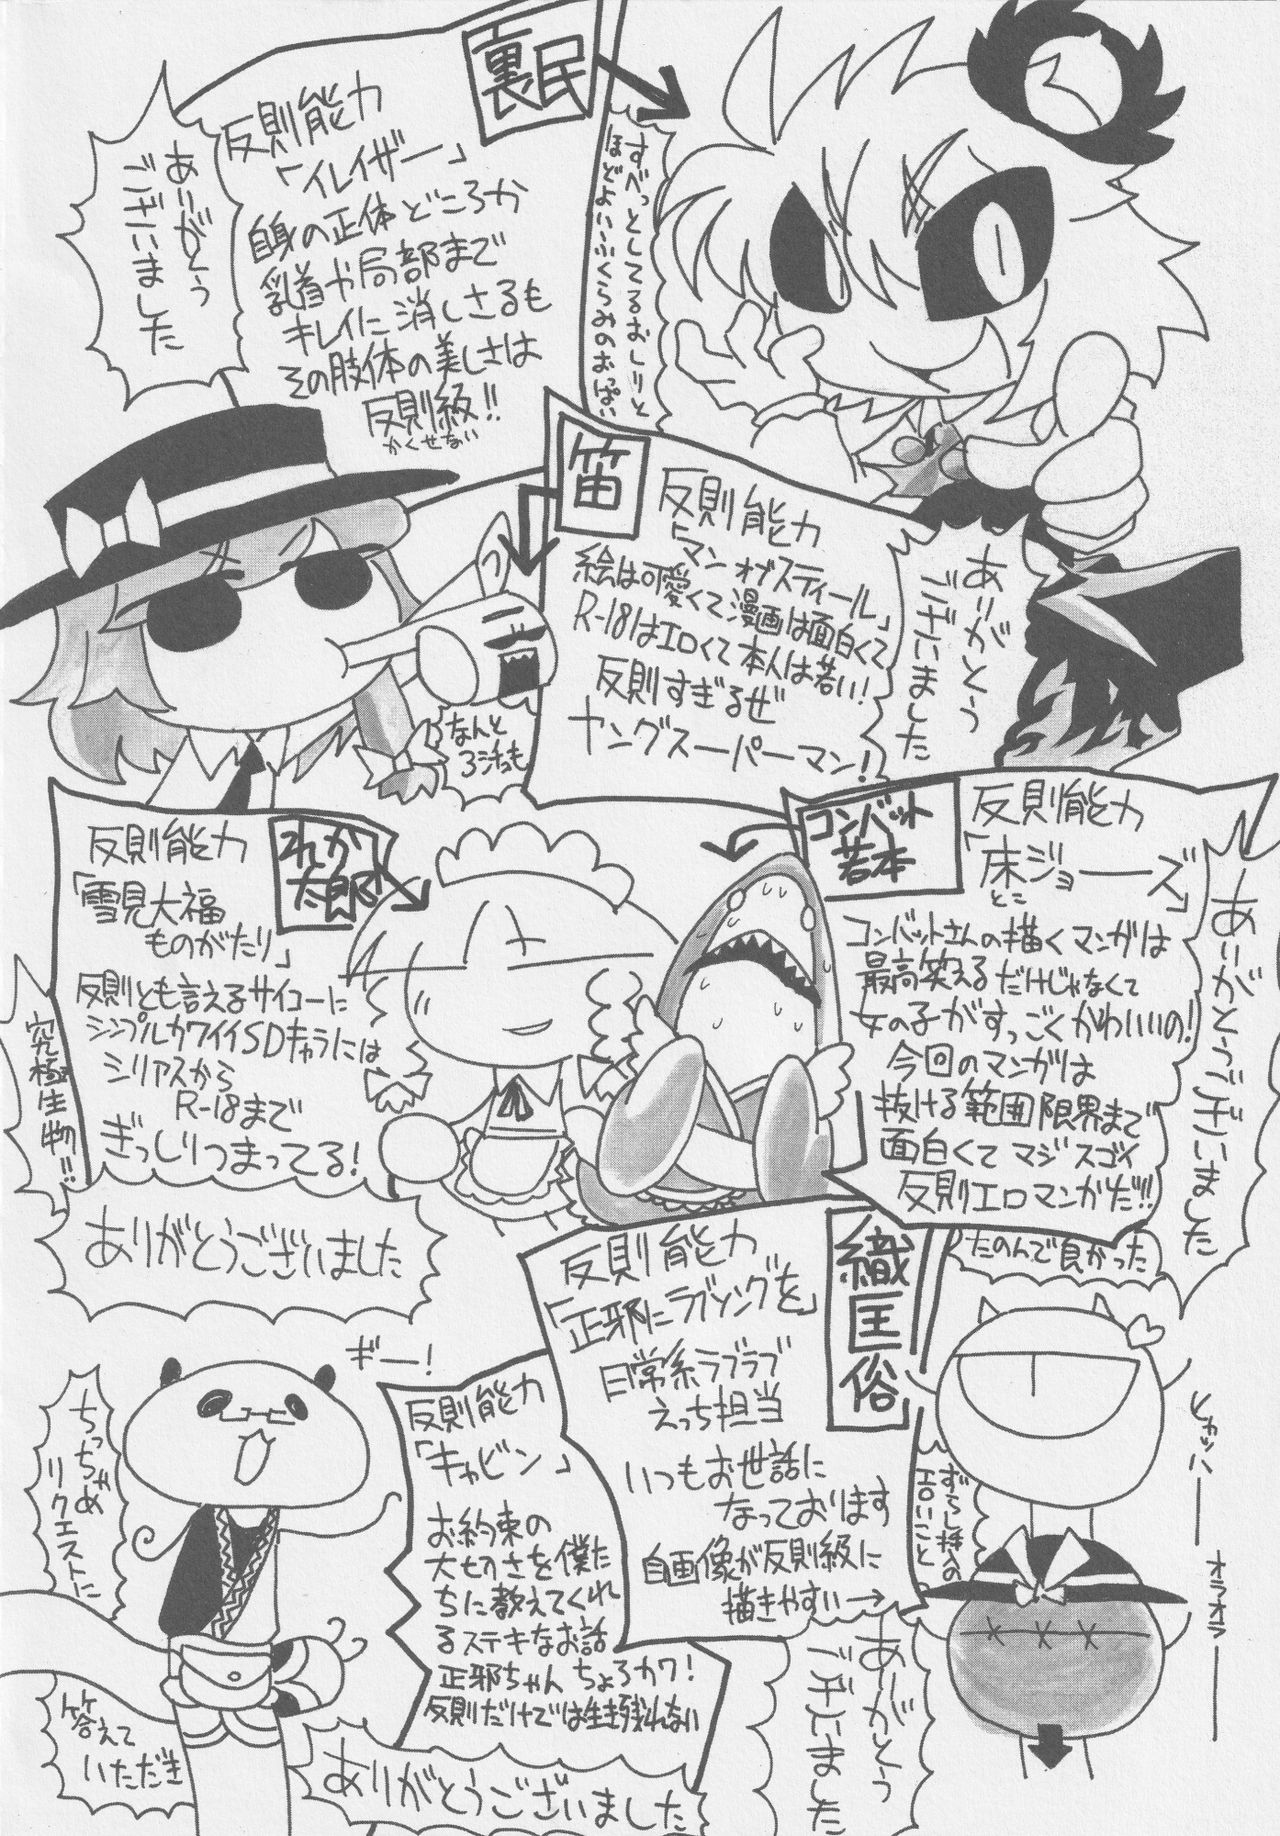 裏民
反則能力
「イレイザー」
自身の正体どころか
乳首や局部まで
キレイに消しさるも
その肢体の美しさは
反則級!!
かくせない
ありがとう
ございました
すべっとしてるおしりと
ほどよいふくらみのおっぱい
笛
反則能力
「マンオブスティール」
絵は可愛くて漫画は面白くて
R-18はエロくて本人は若い!
反則すぎるぜ
ヤングスーパーマン!
ありがとう
ございました
なんと
3活も
コンバット
若本
反則能力
「床ジョーズ」
とこ
コンバットさんの描くマンガは
最高笑えるだけじゃなくて
女の子がすっごくかわいいの!
今回のマンガは
抜ける範囲限界まで
面白くてマジスゴイ
反則エロマンガだ!!
ありがとうございました
たのんで良かった
それか
太郎
反則能力
「雪見大福
ものがたり」
反則とも言えるサイコーに
シンプルカワイイSDキャラには
シリアスから
R-18まで
ぎっしりつまってる!
究極生物!!
ありがとうございました
織匡俗
反則能力
「正邪にラブソングを」
日常系ラブラブ
えっち担当
いつもお世話に
なっております
自画像が反則級に
描きやすい→
ずらし挿入の
エロいこと
ヒャッハー
オラオラー
ありがとう
ございました
反則能力
「キャビン」
お約束の
大切さを僕た
ちに教えてくれ
るステキなお話
正邪ちゃんちょろカワ!
反則だけでは生き残れない
ギー!
ちっちゃめ
リクエストに
答えて
いただき
ありがとうございました